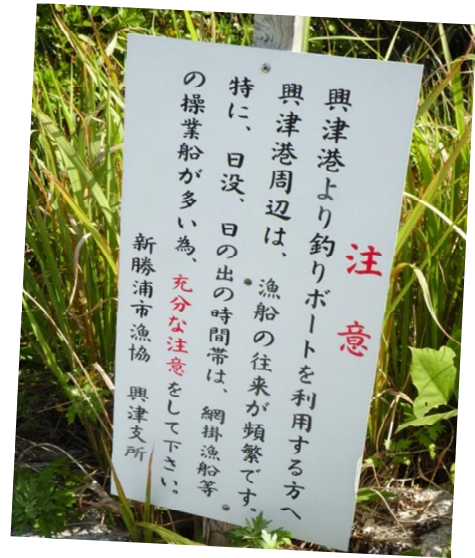 注意
興津港より釣りボートを利用する方へ
興津港周辺は、漁船の往来が頻繁です。
特に、日没、日の出の時間帯は、網掛漁船等
の操業船が多い為、充分な注意をして下さい。
新勝浦市漁協 興津支所